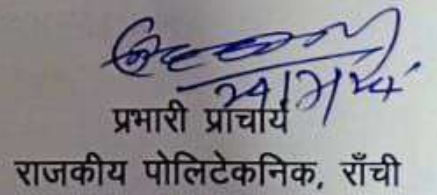 प्रभारी प्राचार्य
राजकीय पोलिटेकनिक, राँची